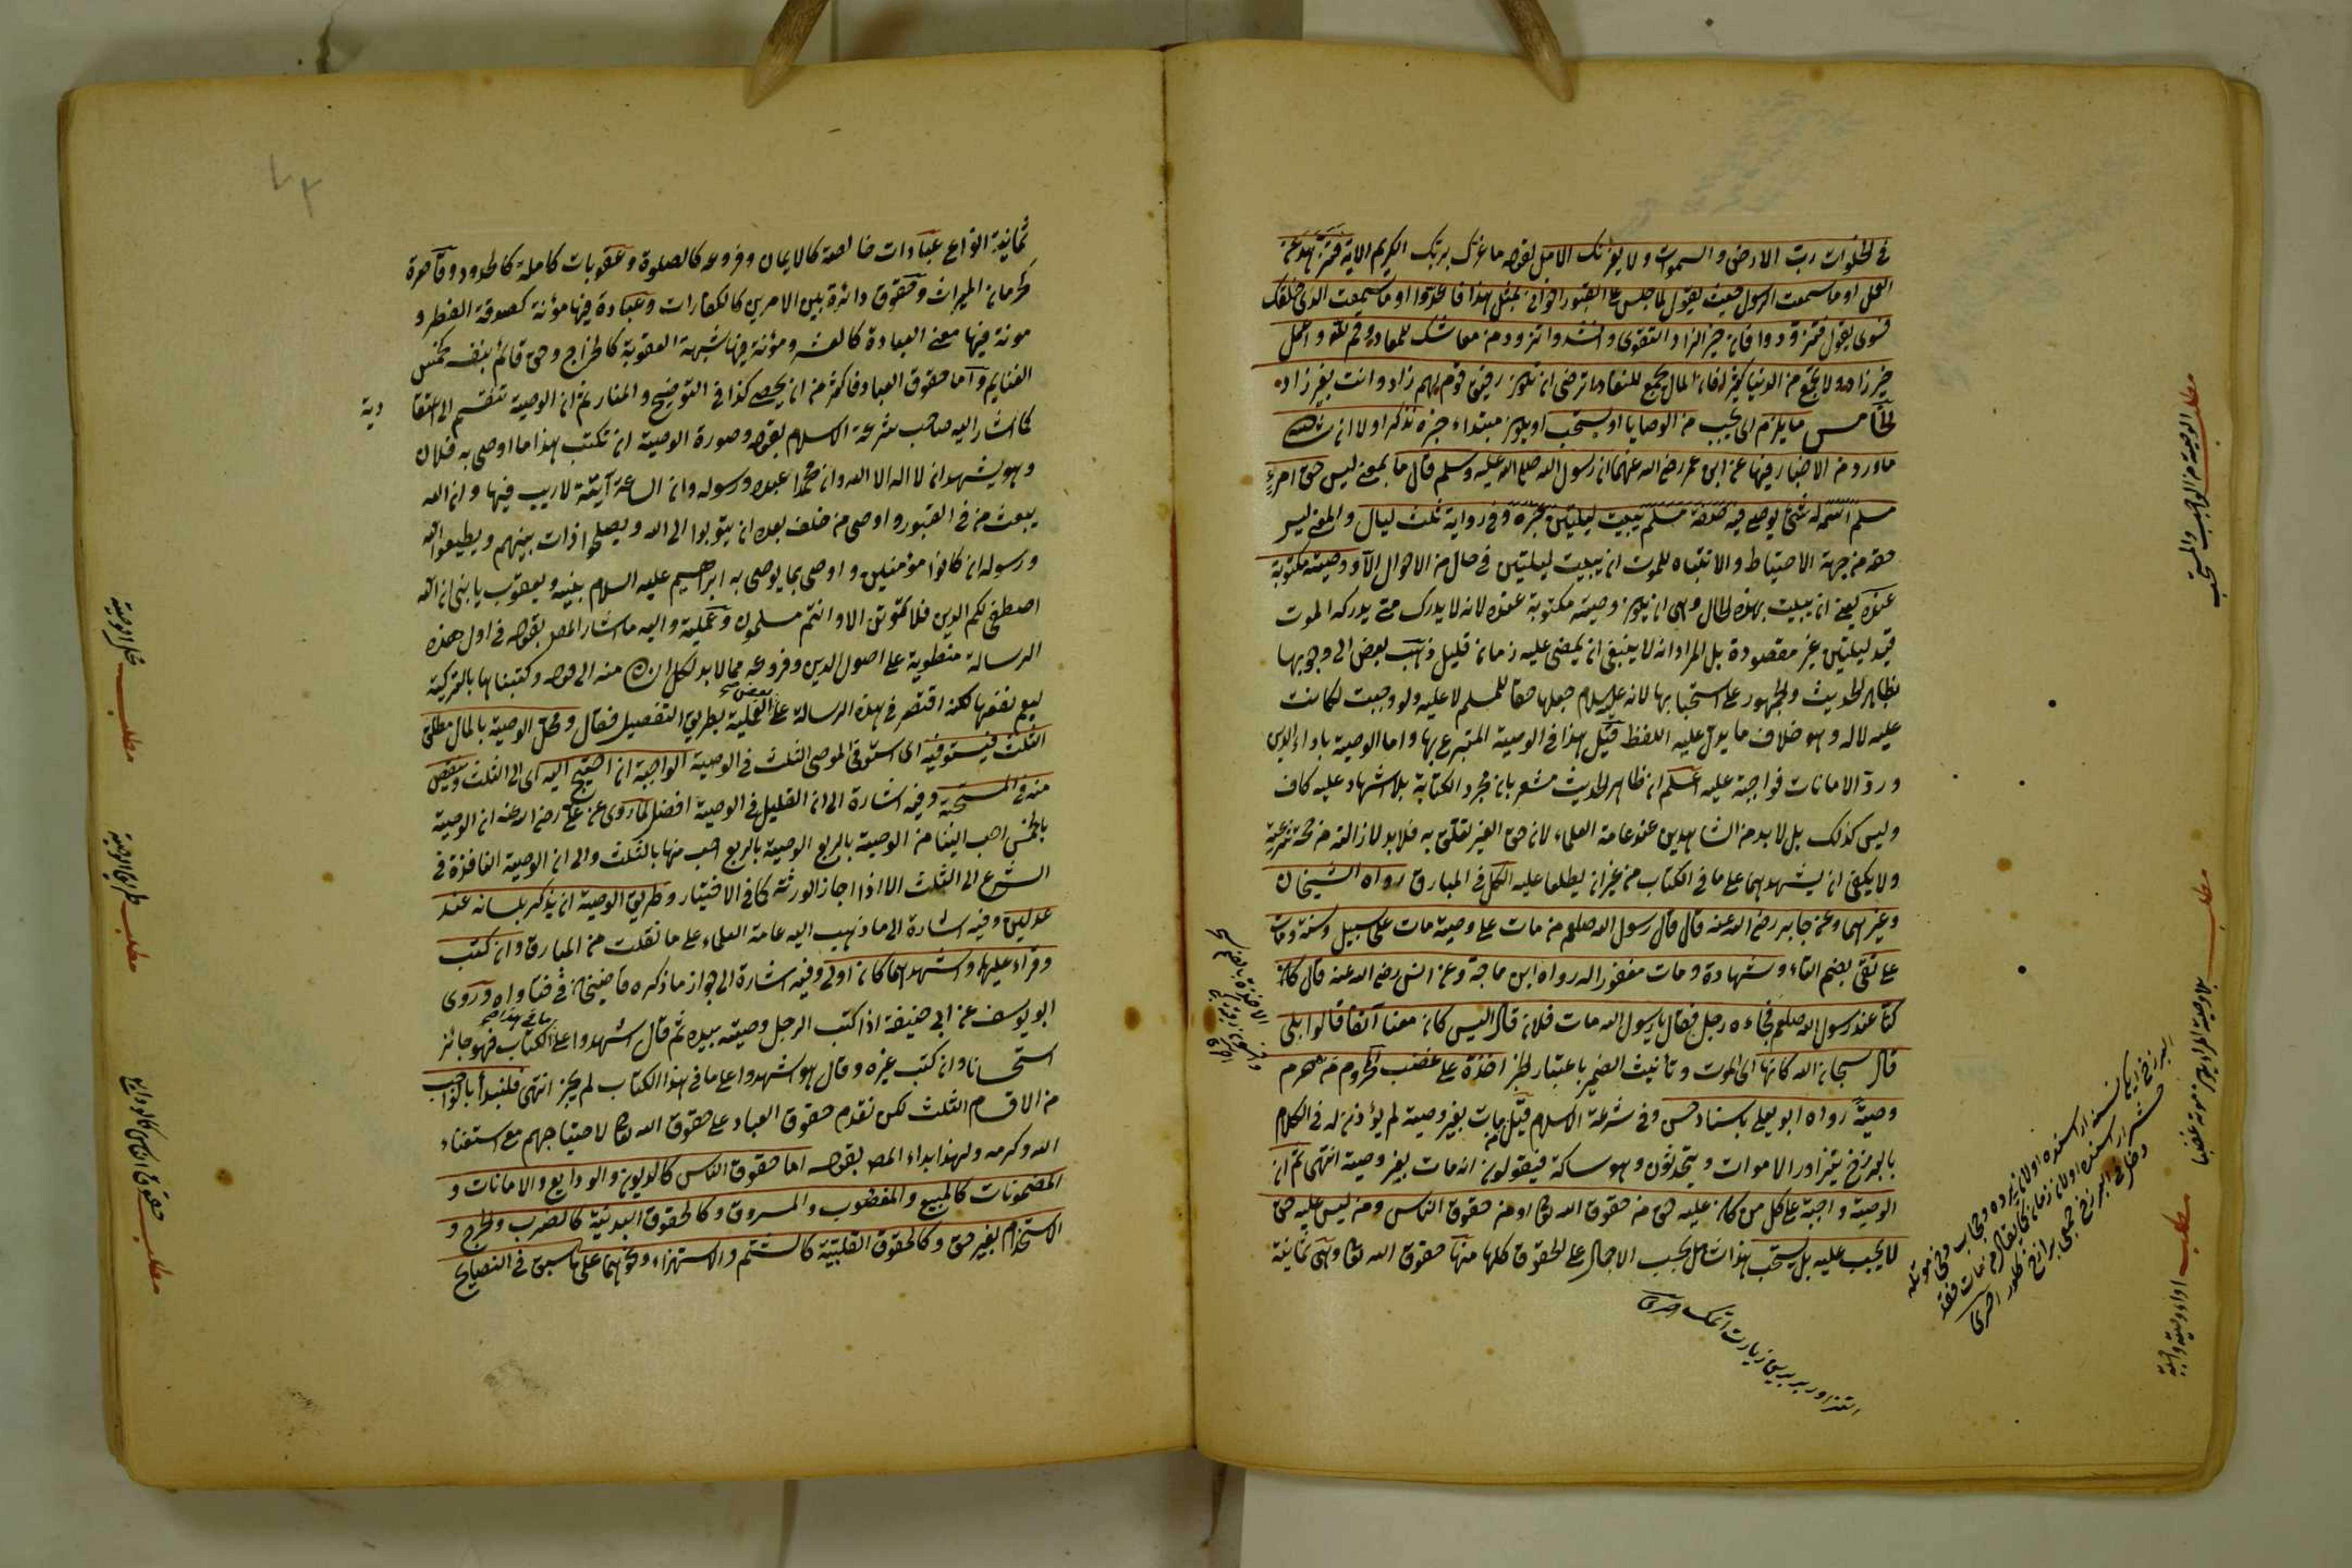 في الخلوات رب الارض والسموات ولا يغرنك الامل لقوله ما غرك بربك الكريم الاية
العمل او ما سمعت الرسول حيث يقول لما جلس على القبور اخواني لمثل هذا فاعدوا او ما سمعت الذي خلقك
فسوى يقول فتزودوا فان خير الزاد التقوى وانشدوا تزود من معاشك للمعاد وقم لله واعمل
خير زاد ولا تجمع من الدنيا كثيرا فان المال يجمع للنفاد اترضى ان تكون رفيق قوم لهم زاد وانت بغير زاد
الخامس ما يلزم اي يجب من الوصايا او يستحب او يكون مبتداء خبره نذكر اولا
ما ورد من الاخبار فيها عن ابن عمر رضي الله عنهما ان رسول الله صلى الله عليه وسلم قال ما بمعنى ليس حق امرئ
مسلم له شئ يوصى فيه صفة مسلم يبيت ليلتين خبره وفي رواية ثلث ليال والمعنى ليس
حقه من جهة الاحتياط والانتباه للموت ان يبيت ليلتين في حال من الاحوال الا ووصيته مكتوبة
عنده يعني ان يبيت بهذه الحال وهي ان يكون وصيته مكتوبة عنده لانه لا يدرك متى يدركه الموت
قيد ليلتين غير مقصودة بل المراد انه لا ينبغي ان يمضى عليه زمان قليل ذهب بعض الى وجوبها
بظاهر الحديث والجمهور على استحبابها لانه عليه السلام جعلها حقا للمسلم لا عليه ولو وجبت لكانت
عليه لا له وهو خلاف ما يدل عليه اللفظ قيل هذا في الوصية المتبرع بها واما الوصية باداء الدين
ورد الامانات فواجبة عليه اعلم ان ظاهر الحديث مشعر بان مجرد الكتابة بلا اشهاد عليه كاف
وليس كذلك بل لا بد من الشاهدين عند عامة العلماء لان حق الغير تعلق به فلا بد لازالته من حجة شرعية
ولا يكفي ان يشهدهما على ما في الكتاب من غير ان يطلعا عليه الكل في المبارق رواه الشيخان
وغيرهما وعن جابر رضي الله عنه قال قال رسول الله صلعم من مات على وصية مات على سبيل وسنة ومات
على تقى بضم التاء وشهادة ومات مغفورا له رواه ابن ماجة وعن انس رضي الله عنه قال كان
كنا عند رسول الله صلعم فجاءه رجل فقال يا رسول الله مات فلان قال اليس كان معنا آنفا قالوا بلى
قال سبحان الله كانها اي الموت وتأنيث الضمير باعتبار الخبر اخذة على غضب المحروم من حرم
وصيته رواه ابو يعلى باسناد حسن وفي شرعة الاسلام قيل من مات بغير وصية لم يؤذن له في الكلام
بالبرزخ يتزاور الاموات ويتحدثون وهو ساكت فيقولون انه مات بغير وصية انتهى ثم ان
الوصية واجبة على كل من كان عليه حق من حقوق الله تعالى او من حقوق الناس ومن ليس عليه حق
لا يجب عليه بل يستحب هذا شامل بحسب الاجمال على الحقوق كلها منها حقوق الله تعالى وهي ثمانية
مطلب الوصية من الواجب والمستحب
مطلب
مطلب اداء وصية واجبة
ثمانية انواع عبادات خالصة كالايمان وفروعه كالصلوة وعقوبات كاملة كالحدود وقاصرة
كحرمان الميراث وحقوق دائرة بين الامرين كالكفارات وعبادة فيها مؤنة كصدقة الفطر و
مونة فيها معنى العبادة كالعشر ومؤنة فيها شبهة العقوبة كالخراج وحق قائم بنفسه كخمس
الغنايم واما حقوق العباد فاكثر من ان يحصى كذا في التوضيح والمنار ثم ان الوصية تنقسم الى اعتقا
دية
كما اشار اليه صاحب شرعة الاسلام بقوله وصورة الوصية ان تكتب هذا ما اوصى به فلان
وهو يشهد ان لا اله الا الله وان محمدا عبده ورسوله وان الساعة آتية لا ريب فيها وان الله
يبعث من في القبور واوصى من خلف بعده ان يتوبوا الى الله ويصلحوا ذات بينهم ويطيعوا الله
ورسوله ان كانوا مؤمنين واوصى بما يوصى به ابراهيم عليه السلام بنيه ويعقوب يا بني ان الله
اصطفى لكم الدين فلا تموتن الا وانتم مسلمون وعملية واليه ما اشار المص بقوله في اول هذه
الرسالة منطوية على اصول الدين وفروعه مما لا بد لكل انسان منه الى قوله وكتبناها بالتركية
ليعم نفعها لكنه اقتصر في هذه الرسالة على العملية بطريق التفصيل فقال ومحل الوصية بالمال مطلق
الثلث فيستوفيه اي استوفى الموصى الثلث في الوصية الواجبة ان احتيج اليه اي الى الثلث وينقص
منه في المستحبة وفيه اشارة الى ان القليل في الوصية افضل لما روى عن علي رضي الله عنه ان الوصية
بالخمس احب الينا من الوصية بالربع الوصية بالربع احب منها بالثلث والى ان الوصية النافذة في
الشرع الى الثلث الا اذا اجاز الورثة كما في الاختيار وطريق الوصية ان يذكر بلسانه عند
عدلين وفيه اشارة الى ما ذهب اليه عامة العلماء على ما نقلت من المبارق وان كتب
وقراء عليهما واشهدهما كان اولى وفيه اشارة الى جواز ما ذكره قاضيخان في فتاواه وروى
ابو يوسف عن ابي حنيفة اذا كتب الرجل وصيته بيده ثم قال اشهدوا على ما في هذا الكتاب فهو جائز
استحسانا وان كتب غيره وقال هو اشهدوا على ما في هذا الكتاب لم يجز انتهى فلنبدأ بالواجب
من الاقسام الثلث لكن نقدم حقوق العباد على حقوق الله تعالى لاحتياجهم مع استغناء
الله وكرمه ولهذا بداء المص بقوله اما حقوق الناس كالديون والودايع والامانات و
المضمونات كالمبيع والمغصوب والمسروق وكالحقوق البدنية كالضرب والجرح و
الاستخدام بغير حق وكالحقوق القلبية كالشتم والاستهزاء ونحوهما على ما سبق في النصايح
مطلب محل الوصية
مطلب طريق الوصية
مطلب حقوق الناس كالودايع